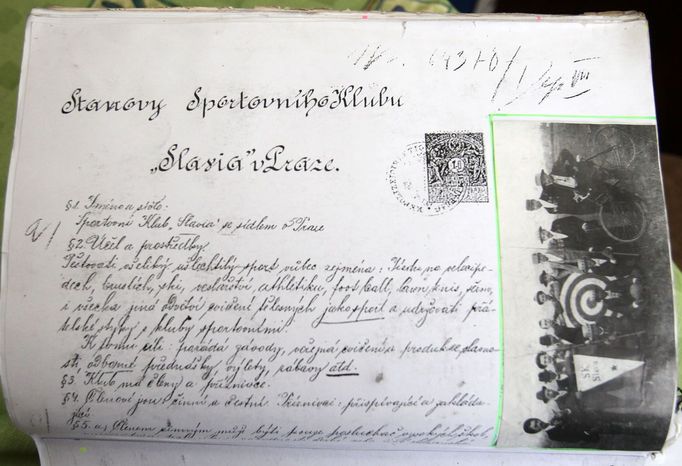 Stanovy Sportovního Klubu
„Slavia“ v Praze.
§ 1. Jméno a sídlo:
Sportovní Klub „Slavia“ se sídlem v Praze
§ 2. Účel a prostředky.
Pěstovati všeliký ušlechtilý sport vůbec zejména: Jízdu na velocipe-
dech, bruslích, ski, veslařství athletiku, foot ball, lawn tenis,
i všecka jiná odvětví cvičení tělesných jako sport a udržovati přá-
telské styky s kluby sportovními.
K tomu cíli: pořádá závody, veřejná cvičení a produkce, slavno-
sti, odborné přednášky, výlety, zábavy atd.
§ 3. Klub má členy a příznivce.
§ 4. Členové jsou činní a čestní. Příznivci: přispívající a zakláda-
jící
§ 5. a) Členem činným může býti pouze posluchač vysokých škol,
SK
Slavia